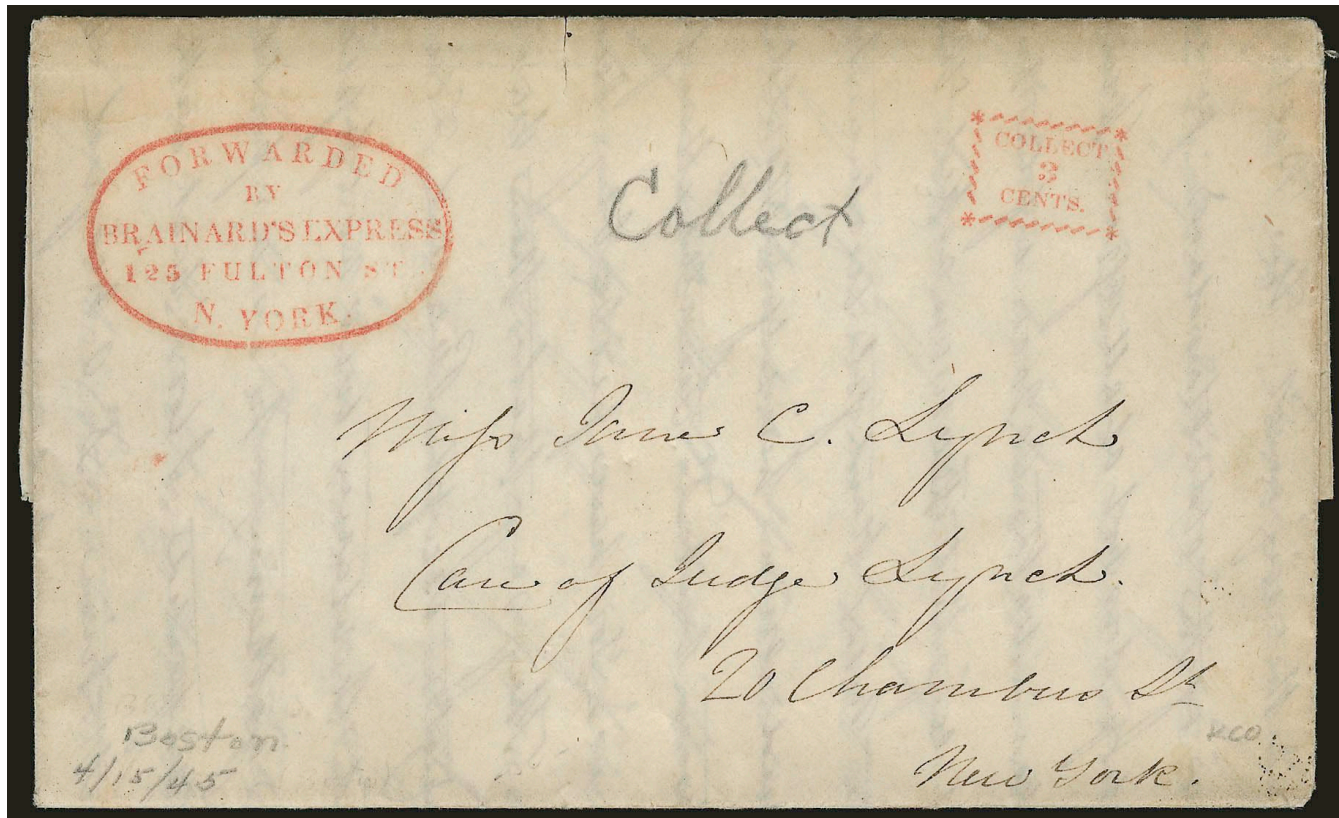 FORWARDED
BY
BRAINARD'S EXPRESS
125 FULTON ST.
N. YORK.
COLLECT
3
CENTS.
Collect
Miss Jane C. Lynch
Care of Judge Lynch.
20 Chambers St
New York.
Boston
4/15/45
KCO